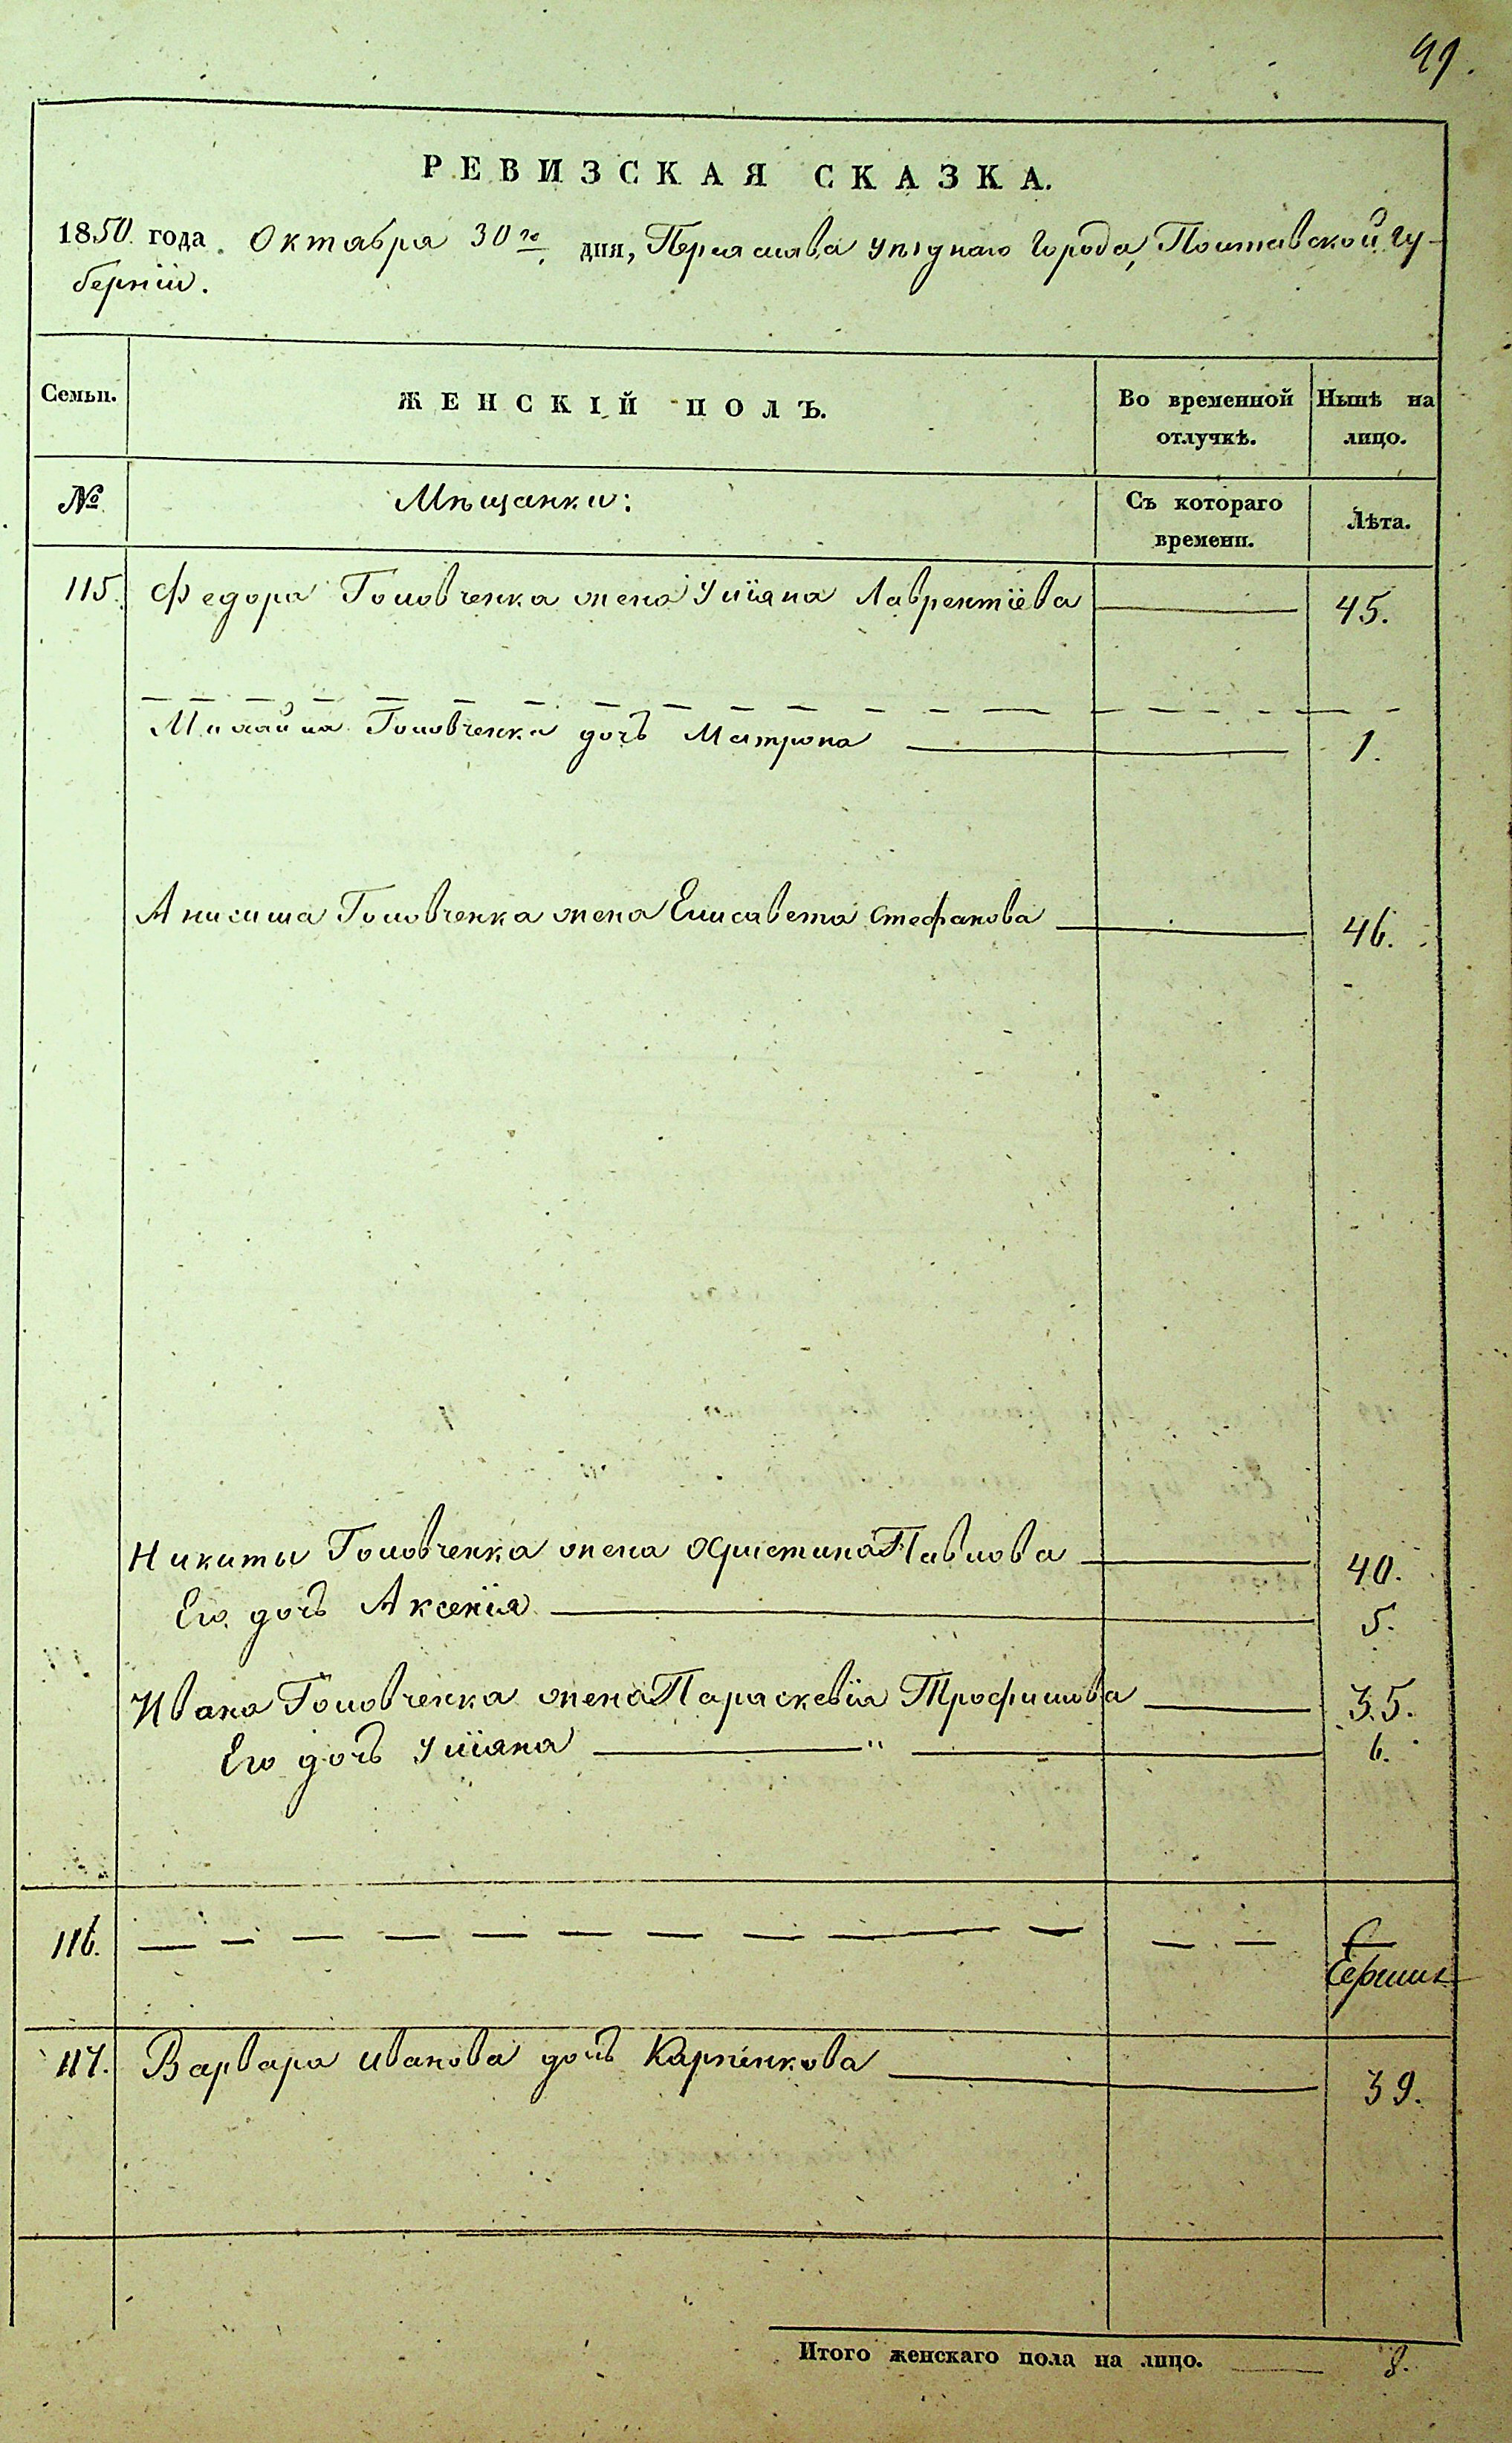 49.
РЕВИЗСКАЯ СКАЗКА.
1850 года. Октября 30го дня, Переяслава уѣзднаго города, Полтавской гу-
берніи.
Семьи. ЖЕНСКІЙ ПОЛЪ. Во временной отлучкѣ. Нынѣ на лицо.
№ Мѣщанки: Съ котораго времени. Лѣта.
115. Федора Головченка жена Уліяна Лаврентіева 45.
Михайла Головченка дочь Матрона 1.
Анисима Головченка жена Елисавета Стефанова 46.
Никиты Головченка жена Христина Павлова 40.
Его дочь Аксенія 5.
Ивана Головченка жена Параскевія Трофимова 35.
Его дочь Уліяна " 6.
116.
117. Варвара Иванова дочь Карпенкова 39.
Итого женскаго пола на лицо. 8.